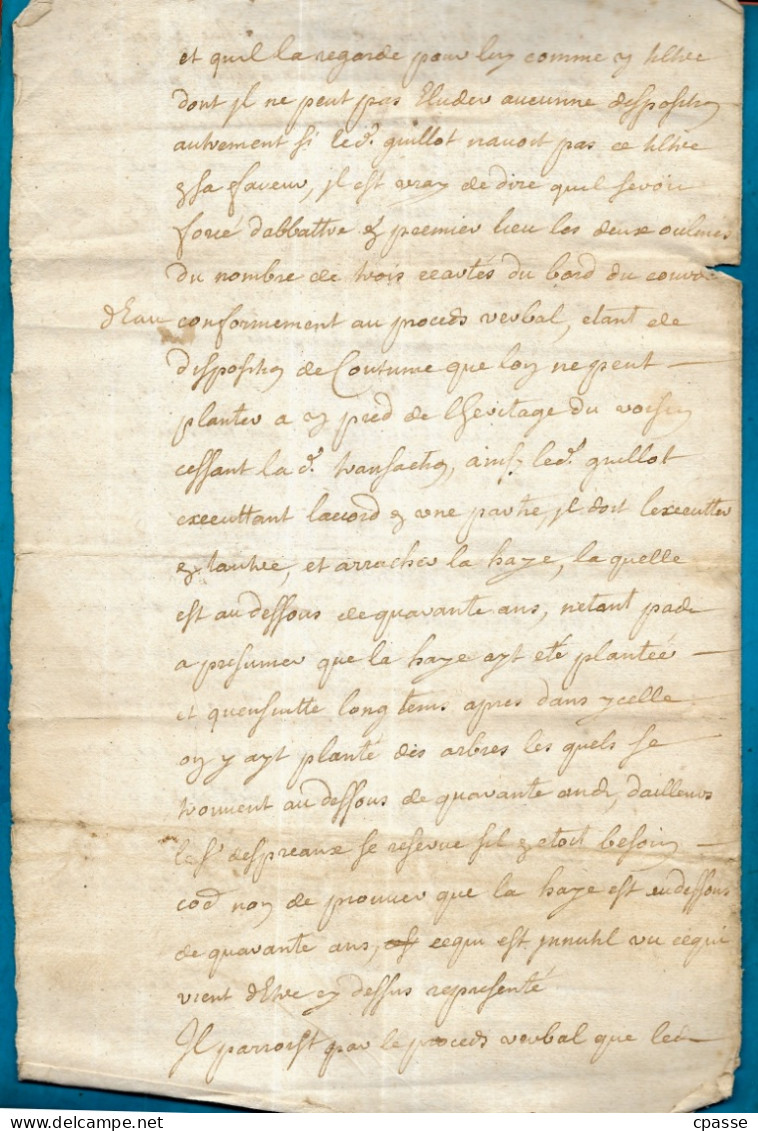 et quil la regarde pour luy comme y tiltre
dont jl ne peut pas Eluder aucunne disposition
autrement si led. guillot navoit pas ce tiltre
en sa faveur, jl est vray de dire quil seroit
forcé dabbattre en premier lieu les deux
du nombre de trois ecartés du bord du cours
dEau conformement au proceds verbal, etant de
disposition de Coutume que lon ne peut
planter a un pied de lheritage du voisin
cessant lad. transaction, ainsy led. guillot
executtant laccord en une partie, jl doit lexecutter
en lautre, et arracher la haye, la quelle
est au dessous de quarante ans, netant pas
a presumer que la haye ayt eté plantée
et quensuitte long tems apres dans ycelle
on y ayt planté des arbres les quels se
trouvent au dessous de quarante ands, dailleurs
le Sr. despreaux se reserve sil en etoit besoin
que non de prouver que la haye est au dessous
de quarante ans, ce qui est jnnutil vu ce qui
vient dEtre cy dessus representé
Jl parroist par le proceds verbal que led
© cpasse